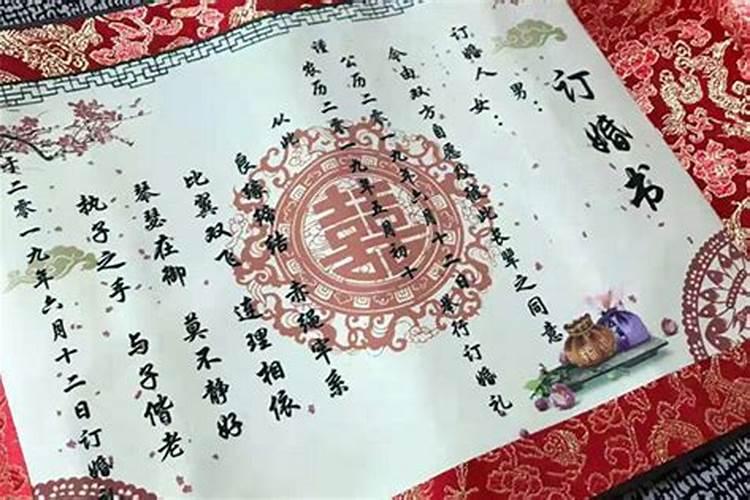 订婚书
男：
订婚人
女：
今由双方自愿及彼此长辈之同意
公历二零一九年六月十二日举行订婚礼
谨农历二零一九年五月初十
从此
良缘缔结 赤绳牢系
比翼双飞 连理相依
琴瑟在御 莫不静好
执子之手 与子偕老
于二零一九年六月十二日订婚
囍